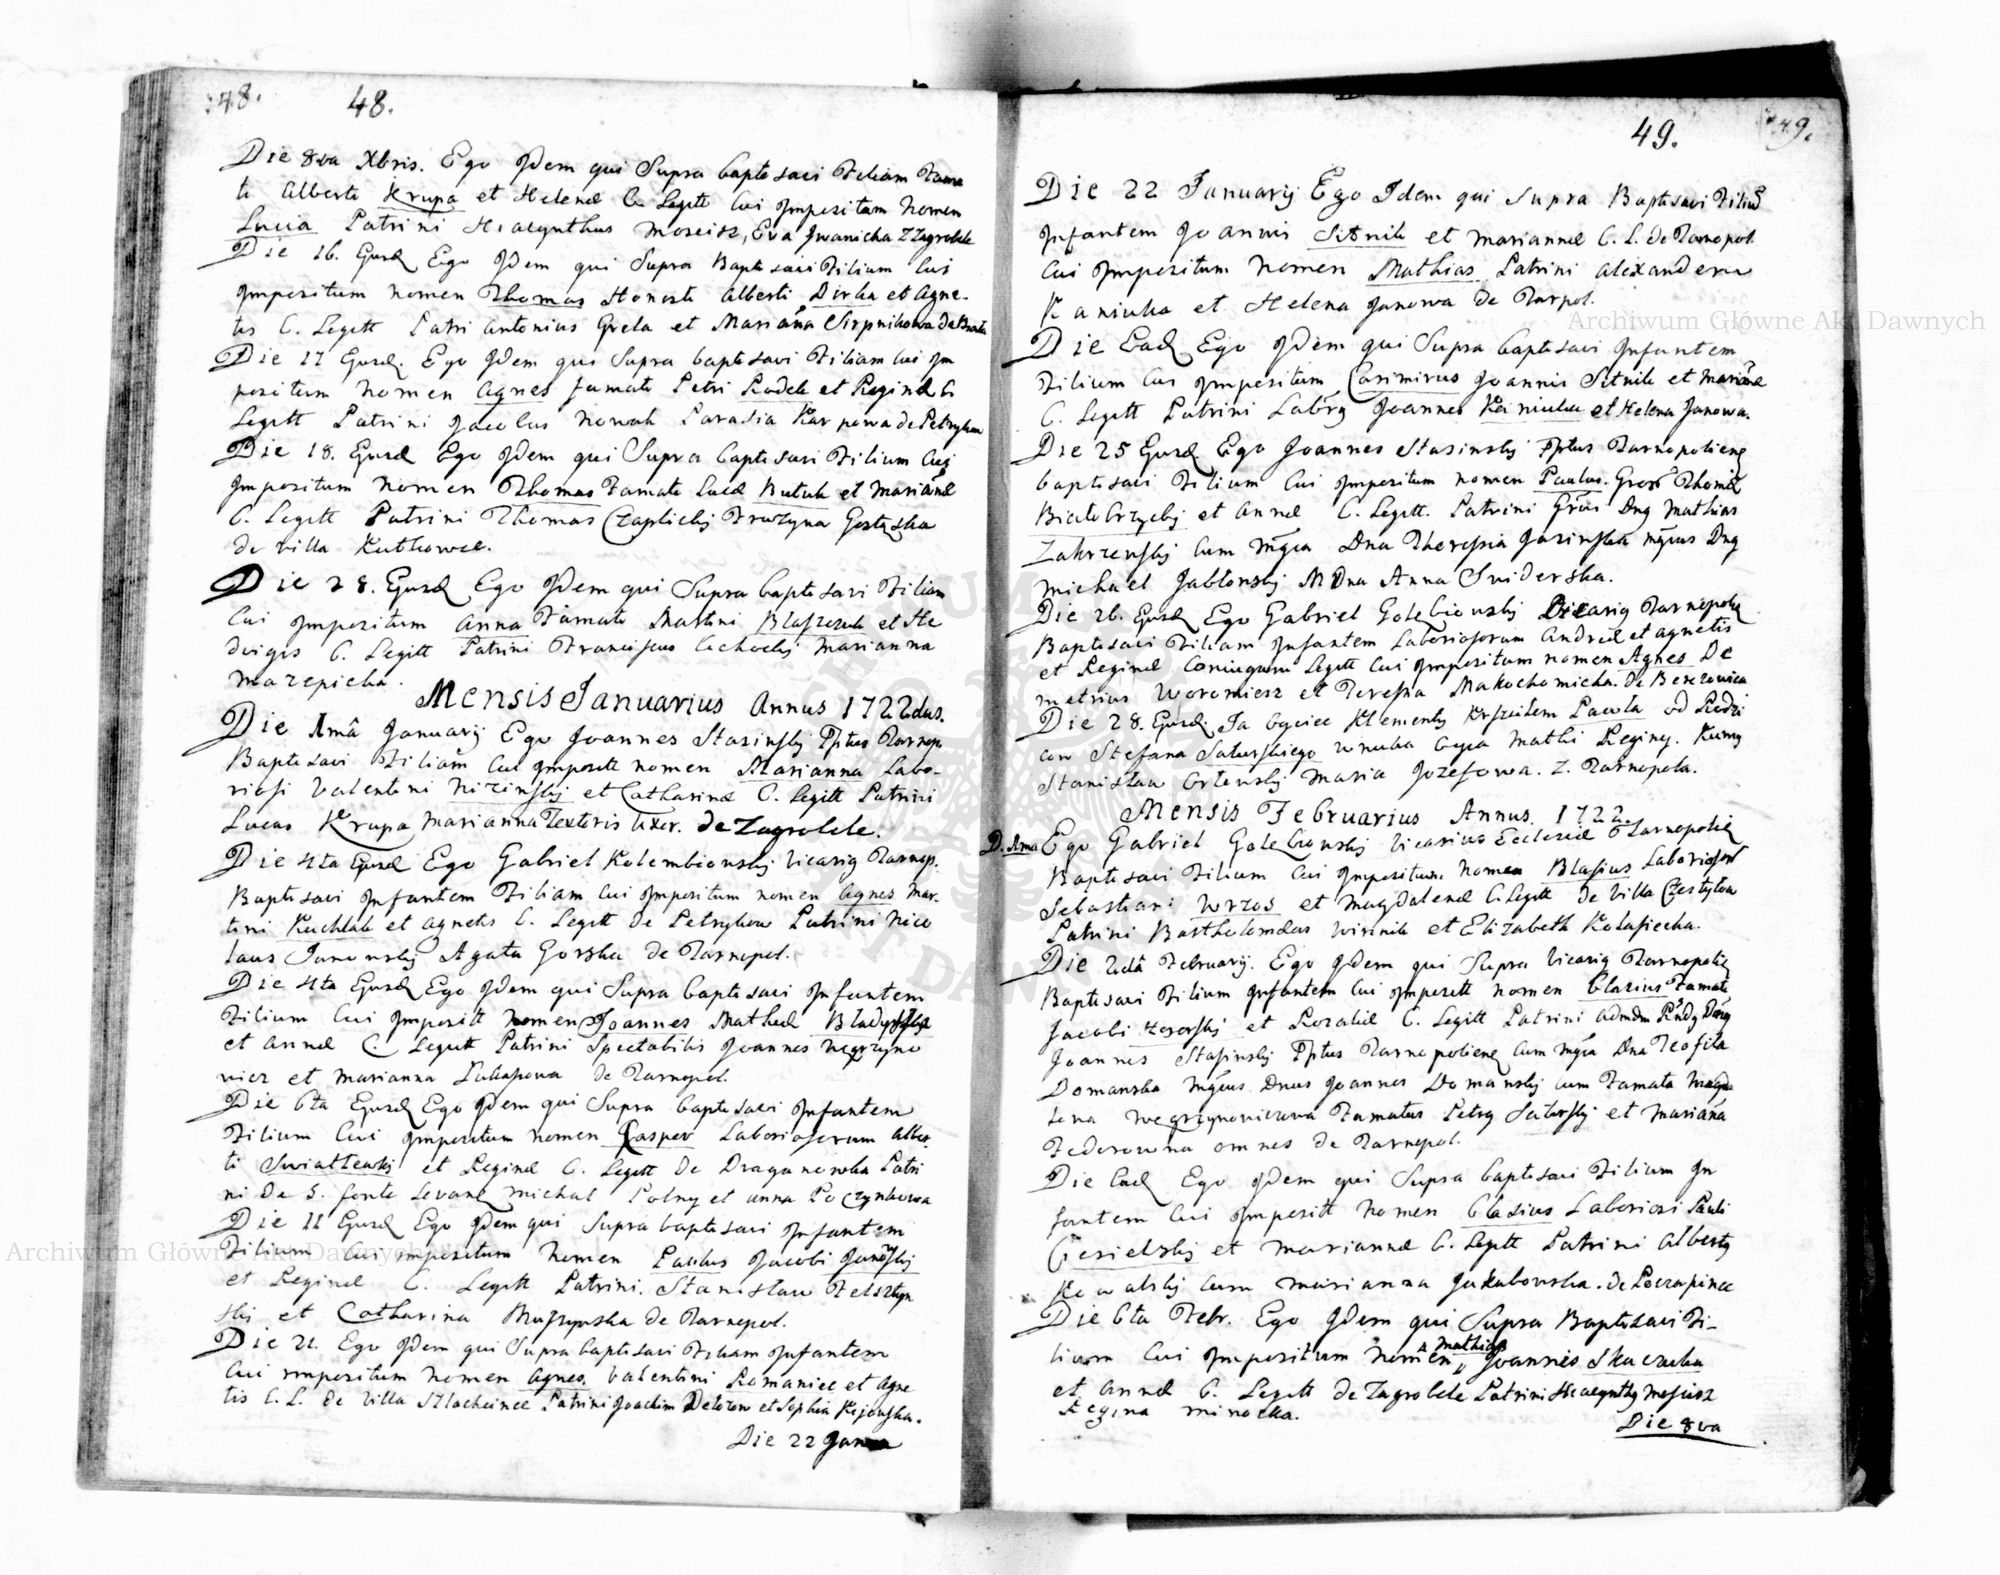 48. 48.
Die 8va Xbris. Ego Jdem qui Supra baptisavi Filiam Fama
ti Alberti Krupa et Helenæ C. Legitt Cui Jmpositum Nomen
Lucia Patrini Hiacynthus Moscisz, Eva Jwanicka Z Zagrobele
Die 16. Ejusd Ego Jdem qui Supra Baptisavi Filium Cui
Jmpositum nomen Thomas Honesti Alberti Dirka et Agne-
tis C. Legitt Patri Antonius Grela et Marianna Sirpnikowa
Die 17 Ejusd. Ego Jdem qui Supra baptisavi Filiam Cui Jm
positum Nomen Agnes famati Petri et Reginæ C.
Legitt Patrini Jacobus Nowak Parasia Karpowa de Petrykow
Die 18. Ejusd Ego Jdem qui Supra baptisavi Filium Cui
Jmpositum Nomen Thomas Famati Lucæ Butuk et Mariannæ
C. Legitt Patrini Thomas Czaplickij Fruzyna
de villa Kutkowce.
Die 28. Ejusd Ego Jdem qui Supra baptisavi Filiam
Cui Jmpositum Anna Famati Martini Blaszczuk et He
dvigis C. Legitt Patrini Franciscus Cichockij Marianna
Mazepicha.
Mensis Januarius Annus 1722dus.
Die 1mâ Januarij Ego Joannes Stasinskij Pptus Tarnop.
Baptisavi Filiam Cui Jmpositt nomen Marianna Labo-
riosi Valentini Nizinskij et Catharinæ C. Legitt Patrini
Lucas Krupa Marianna Textoris Uxor. de Zagrobele.
Die 4ta Ejusd Ego Gabriel Kolembiowskij Vicariq Tarnop.
Baptisavi Jnfantem Filiam Cui Jmpositum nomen Agnes Mar-
tini Kuchlak et Agnetis C. Legitt de Petrykow Patrini Nico
laus Janowskij Agata Gorska de Tarnopol.
Die 4ta Ejusd Ego Jdem qui Supra baptisavi Jnfantem
Filium Cui Jmpositt nomen Joannes Mathæi
et Annæ C. Legitt Patrini Spectabilis Joannes Węgrzyno
wicz et Marianna Lukaszowa de Tarnopol.
Die 6ta Ejusd Ego Jdem qui Supra baptisavi Jnfantem
Filium Cui Jmpositum nomen Casper Laboriosorum Alber
ti Swiatlewskij et Reginæ C. Legitt de Draganowka Patri
ni de S. fonte Levanę Michal Polny et Anna
Die 11 Ejusd Ego Jdem qui Supra baptisavi Jnfantem
Filium Cui impositum nomen Paulus Jacobi
et Reginæ C. Legitt Patrini. Stanislaw Felsztyn
skij et Catharina de Tarnopol.
Die 21. Ego Jdem qui Supra baptisavi Filiam Jnfantem
Cui impositum nomen Agnes. Valentini Romaniec et Agne
tis C. L. de Villa Szlachcince Patrini Joachim et Sophia Kijowska.
Die 22 Janua
49. 49.
Die 22 Januarij Ego Idem qui Supra Baptisavi Filium
Jnfantem Joannis Sitnik et Mariannæ C. L. de Tarnopol.
Cui Jmpositum Nomen Mathias Patrini Alexander
Kaniuka et Helena Janowa de Tarpol.
Die Ead Ego Jdem qui Supra baptisavi Jnfantem
Filium Cui Jmpositum Casimirus Joannis Sitnik et Mariannæ
C. Legitt Patrini Labrq Joannes Kaniuka et Helena Janowa.
Die 25 Ejusd Ego Joannes Stasinskij Pptus Tarnopoliens
baptisavi Filium Cui Jmpositum nomen Paulus. Thomæ
Bialobrzyckij et Annæ C. Legitt. Patrini Dnq Mathias
Zakrzewskij Cum Mgca Dna Theressia Mgcus Dnq
Michael Jablonskij M Dna Anna Swiderska.
Die 26. Ejusd Ego Gabriel Golębiowskij Vicariq Tarnopoliens
Baptisavi Filiam Jnfantem Laboriosorum Andreæ et Agnetis
et Reginæ Coniugum Legitt Cui Jmpositum nomen Agnes De
metrius Woromiesz et Teressia Makochomicha. de Berezowica
Die 28. Ejusd. Ja Oyciec Klementij Krzcilem Pawla od Rodzi
cow Stefana Saturskiego wnuka Oyca Matki Reginy. Kumy
Stanislaw Orlewskij Maria Jozefowa. Z. Tarnopola.
Mensis Februarius Annus. 1722.
D. 1ma Ego Gabriel Golębiowskij Vicarius Ecclesiæ Tarnopoliens
Baptisavi Filium Cui Jmpositum Nomen Blasius Laboriosor
Sebastiani Wrzos et Magdalenæ C. Legitt de Villa Czestylow
Patrini Bartholomæus Winnik et Elizabeth Kolasiecka.
Die 2dâ Februarij. Ego Jdem qui Supra Vicariq Tarnopoliens
Baptisavi Filium Jnfantem Cui Jmpositt nomen Blasius Famati
Jacobi et Rozaliæ C. Legitt Patrini Admdm Rndq Dnq
Joannes Stasinskij Pptus Tarnopoliens Cum Mgca Dna Teofila
Domanska Mgcus Dnus Joannes Domanskij cum Famata Magda
lena Węgrzynowiczowa Famatus Petrq Saturskij et Marianna
Federowna omnes de Tarnopol.
Die Ead Ego Jdem qui Supra baptisavi Filium Jn
fantem Cui Jmpositt Nomen Blasius Laboriosi Pauli
Ciesielskij et Mariannæ C. Legitt Patrini Albertq
Kowalskij Cum Marianna Jakubowska. de Poczapince
Die 6ta Febr. Ego Jdem qui Supra Baptisavi Fi-
lium Cui Jmpositum Nomen Mathias Joannis Skaczuka
et Annæ C. Legitt de Zagrobele Patrini Hiacynthq Mosciosz
Regina Minacka.
Die 8va
Archiwum Główne Akt Dawnych
Archiwum Główne Akt Dawnych